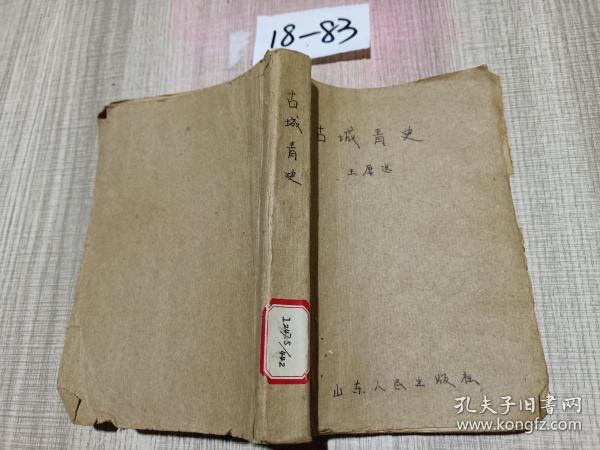 18-83
古城青史
古城青史
王厚选
I247.5/442
山东人民出版社
孔夫子旧书网
www.kongfz.com